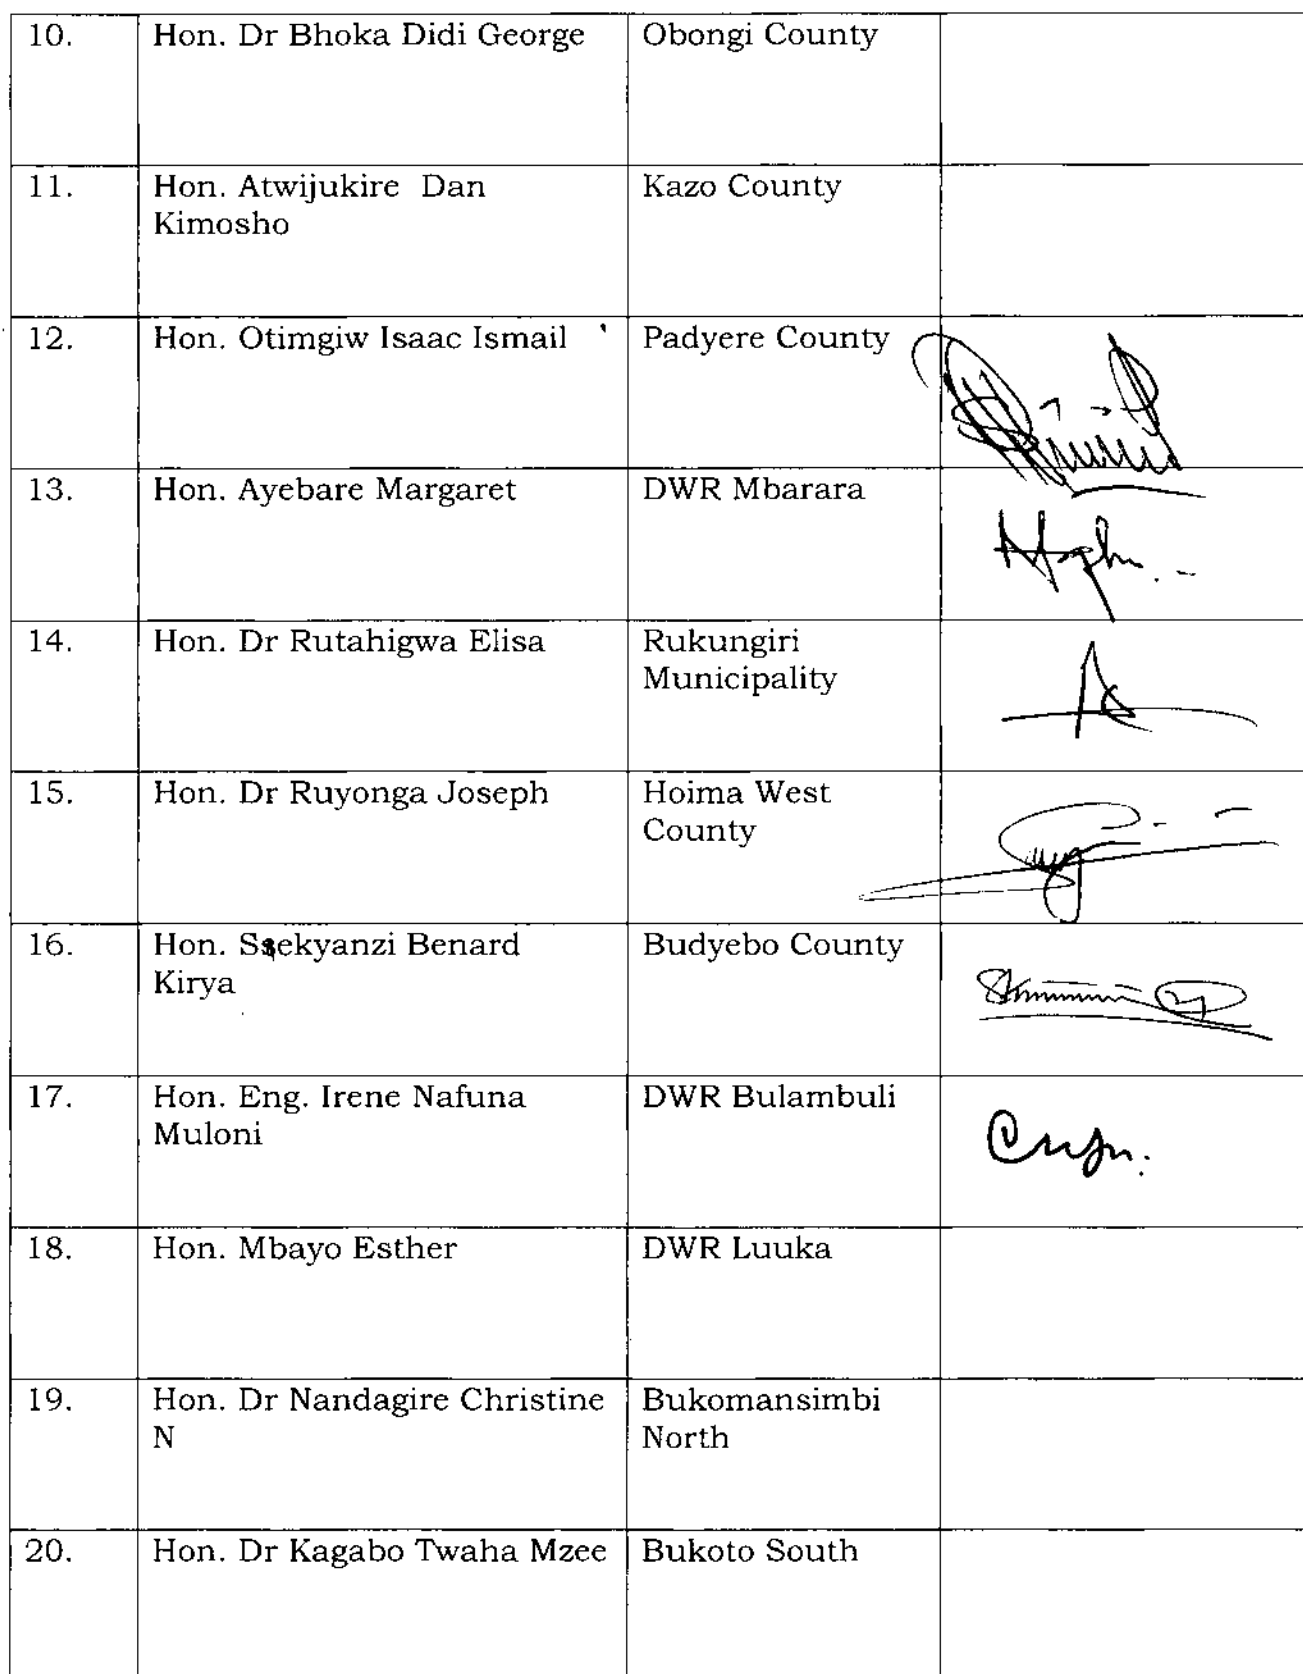 10. Hon. Dr Bhoka Didi George Obongi County
11. Hon. Atwijukire Dan Kazo County
Kimosho
12. Hon. Otimgiw Isaac Ismail Padyere County
13. Hon. Ayebare Margaret DWR Mbarara
14. Hon. Dr Rutahigwa Elisa Rukungiri
Municipality
15. Hon. Dr Ruyonga Joseph Hoima West
County
16. Hon. Ssekyanzi Benard Budyebo County
Kirya
17. Hon. Eng. Irene Nafuna DWR Bulambuli
Muloni
18. Hon. Mbayo Esther DWR Luuka
19. Hon. Dr Nandagire Christine Bukomansimbi
N North
20. Hon. Dr Kagabo Twaha Mzee Bukoto South